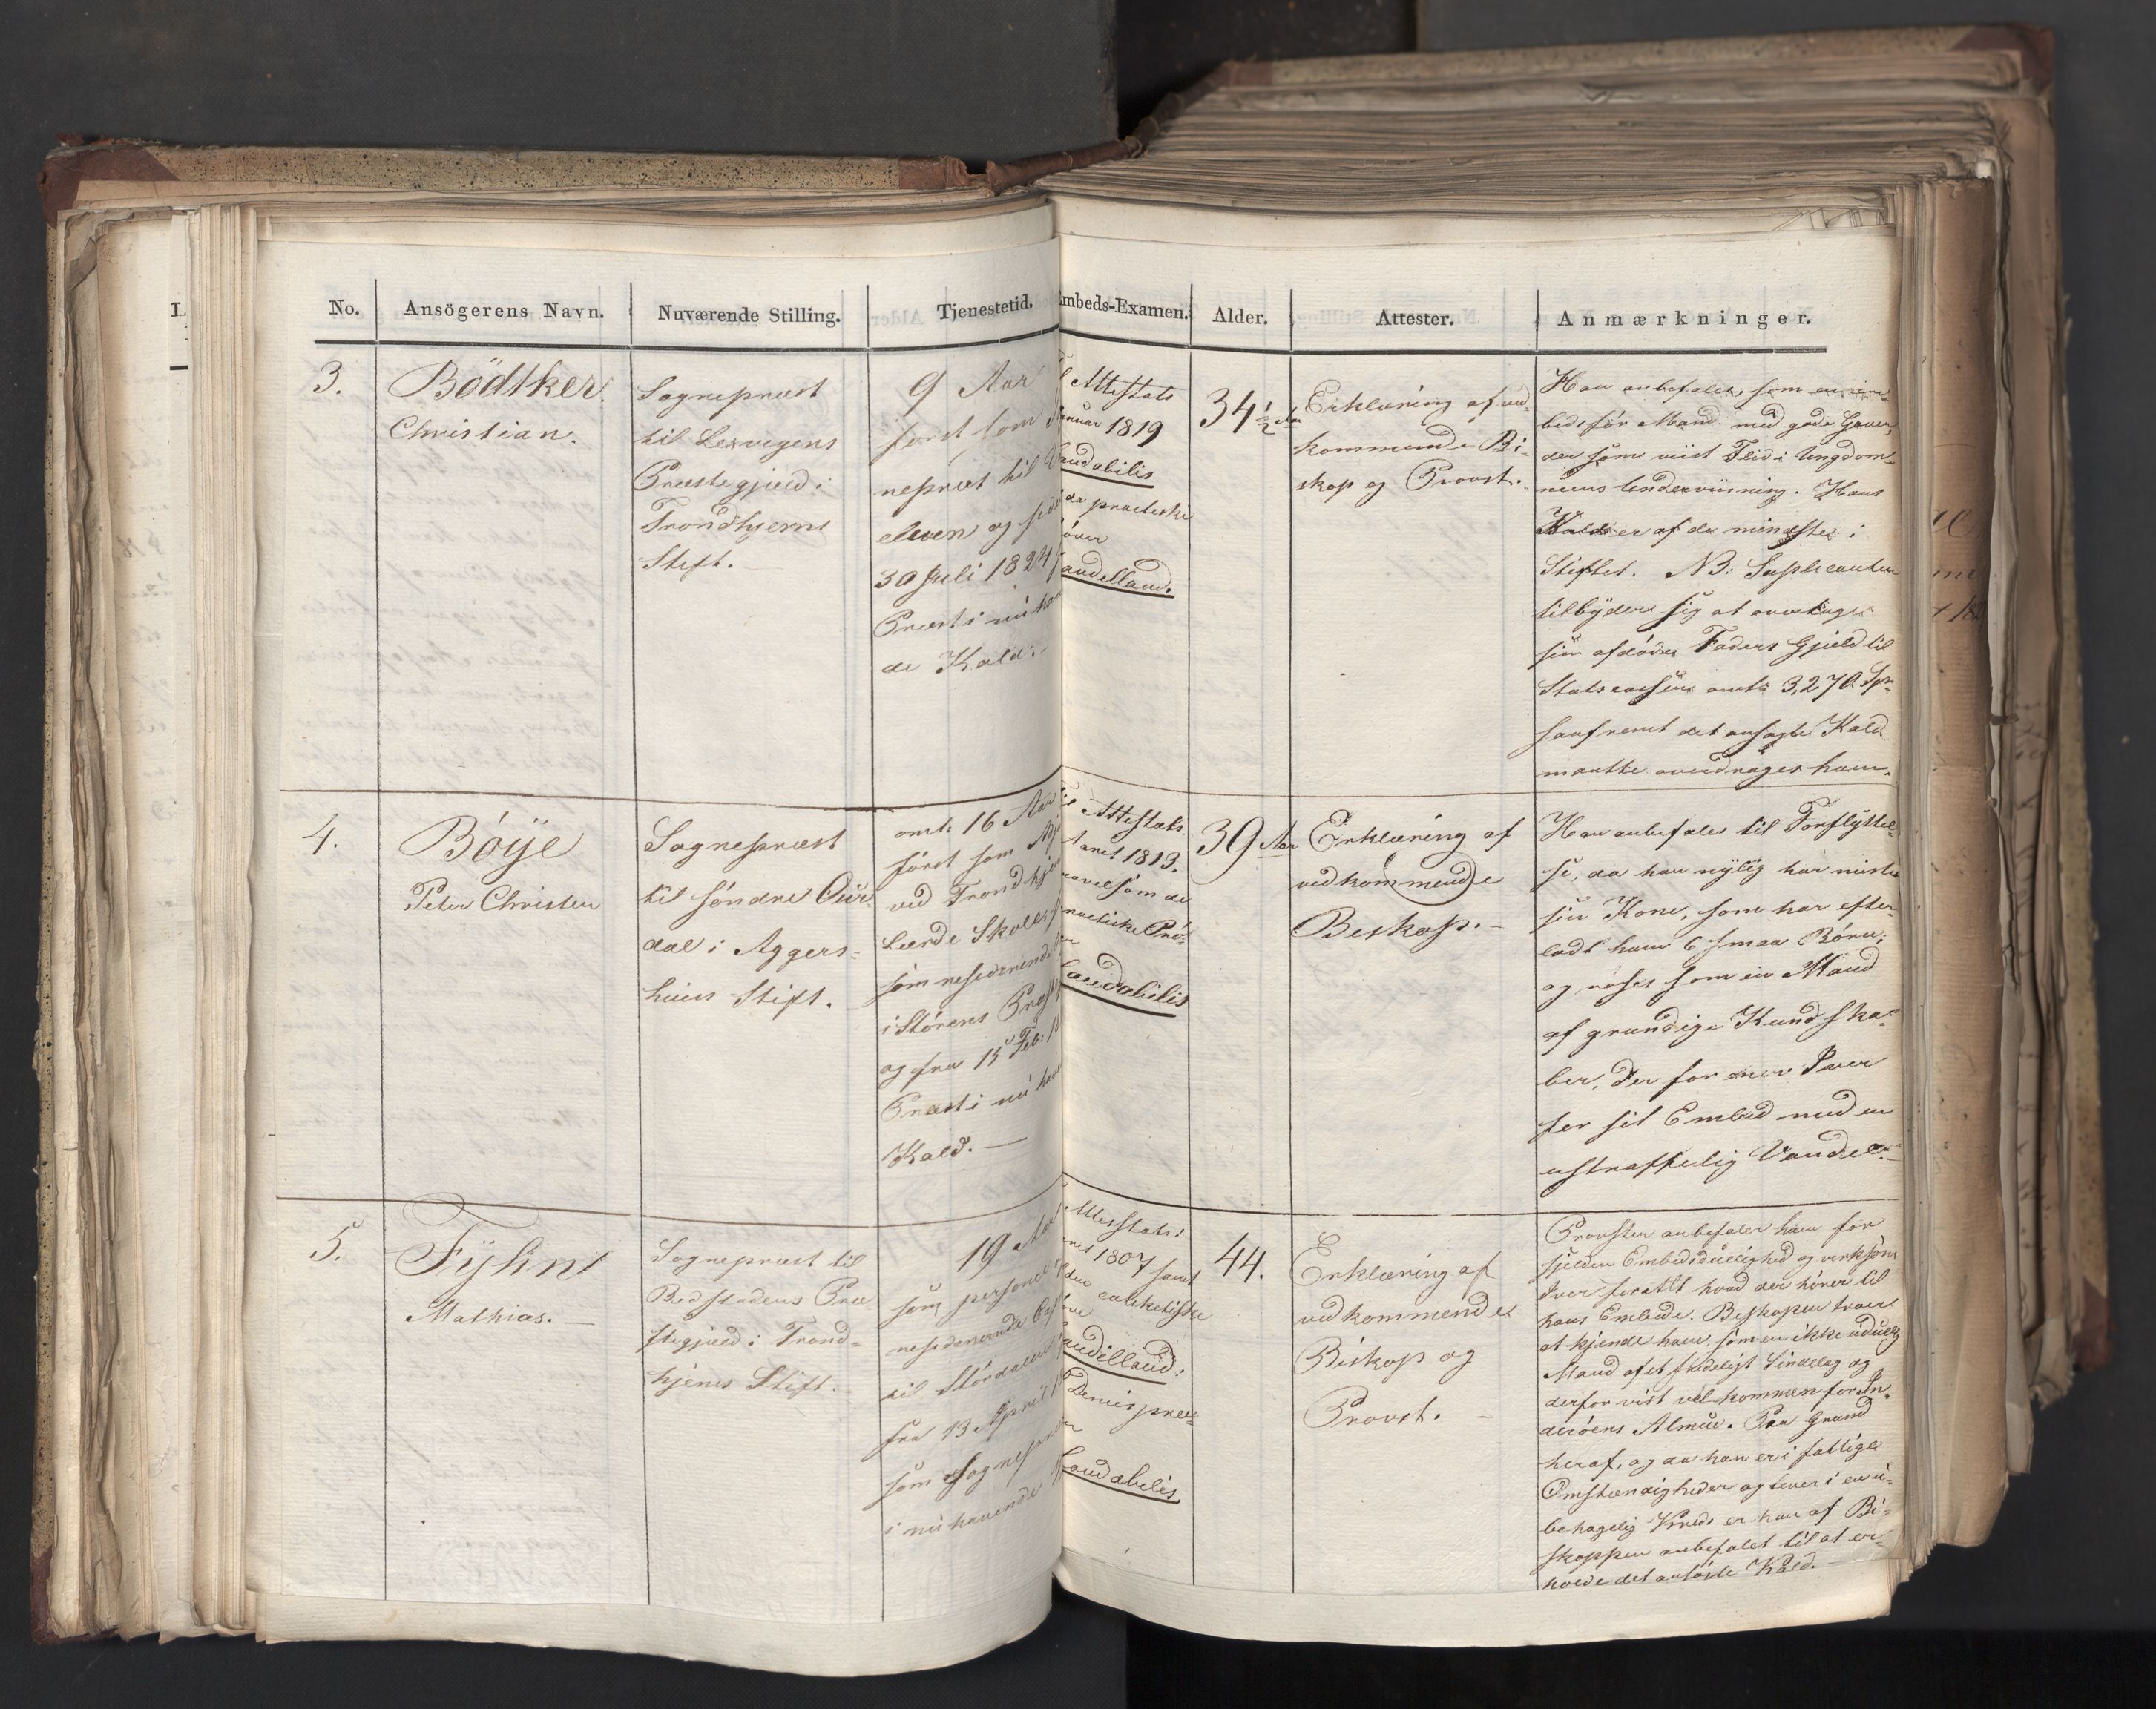 No. Ansögerens Navn. Nuværende Stilling. Tjenestetid. Embeds-Examen. Alder. Attester. Anmærkninger.
3.
Bödtker
Christian.
Sognepræst
til Lexvigens
Præstegjeld i
Trondhjems
Stift.
9 Aar
først som
nepræst til
eleven og
30 Juli 1824
Præst i nu
de Kald.
Attestats
Januar 1819
Laudabilis
de practiske
över
haud illaud.
34 1/2 Aar
Erklæring af ved-
kommende Bi-
skop og Provst.
Han anbefales som en
Mand med gode Gaver,
der som viist Flid i Ungdom-
mens Underviisning. Hans
Kald er af de mindste i
Stiftet. NB: Suplicanten
tilbyder sig at overtage
sin afdöde Faders Gjeld til
Statscassen omtr 3,270 Spr
saafremt det ansögte Kald
maatte overdrages ham.
4.
Böye
Peter Christen
Sognepræst
til söndre Our
dal i Aggers-
huus Stift.
omtr 16 Aar
först som
ved Trondhj
Lærde Skole
som residerende
i Störens Præst
og fra 15 Feb:
Præst i nu have
Kald. —
Til Attestats
Aaret 1813.
saavelsom de
practiske Prö-
Laudabilis
39 Aar
Erklæring af
vedkommende
Biskop. -
Han anbefales til Forflyttel-
se, da han nylig har mistet
sin Kone, som har efter-
ladt ham 6 smaa Börn;
og roses som en Mand
af grundige Kundska-
ber, der for mer Iver
for sit Embed med en
ustraffelig Vandel.
5.
Fylint
Mathias. —
Sognepræst til
Bedstadens Præ
stegjeld i Trond-
hjems Stift.
19 Aar
som personel
residerende
til Stördalen
fra 13 April
som Sognepræst
i nu havende
Attestats
1807 samt
den catechetiske
haud illaud:
Dimisspræ-
Laudabilis
44.
Erklæring af
vedkommende
Biskop og
Provst. -
Provsten anbefaler ham for
sjelden Embedsduelighed og virksom
Iver for alt hvad der hörer til
hans Embede. Biskopen troer
at kjende ham, som en ikke uduelig
Mand af et fredeligt Sindelag og
derfor vist velkommen for In-
deröens Almue. Paa Grund
heraf, og da han er i fattige
Omstændigheder og lever i en u-
behagelig Kreds er han af Bi-
skoppen anbefalet til at er-
holde det ansögte Kald. —